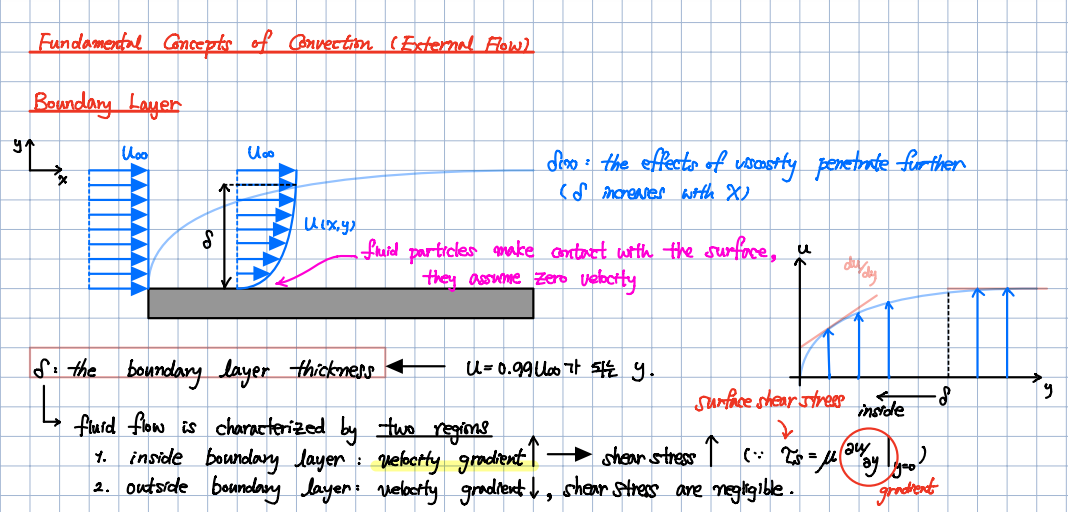 Fundamental Concepts of Convection (External Flow)
Boundary Layer
y
x
U∞
U∞
δ
u(x,y)
δ(x) : the effects of viscosity penetrate further
(δ increases with x)
fluid particles make contact with the surface,
they assume zero velocity
u
du/dy
y
δ
inside
δ : the boundary layer thickness
u = 0.99U∞가 되는 y.
surface shear stress
fluid flow is characterized by two regions
1. inside boundary layer : velocity gradient ↑ → shear stress ↑ (∵ τs = μ ∂u/∂y |y=0)
2. outside boundary layer : velocity gradient ↓, shear stress are negligible.
gradient